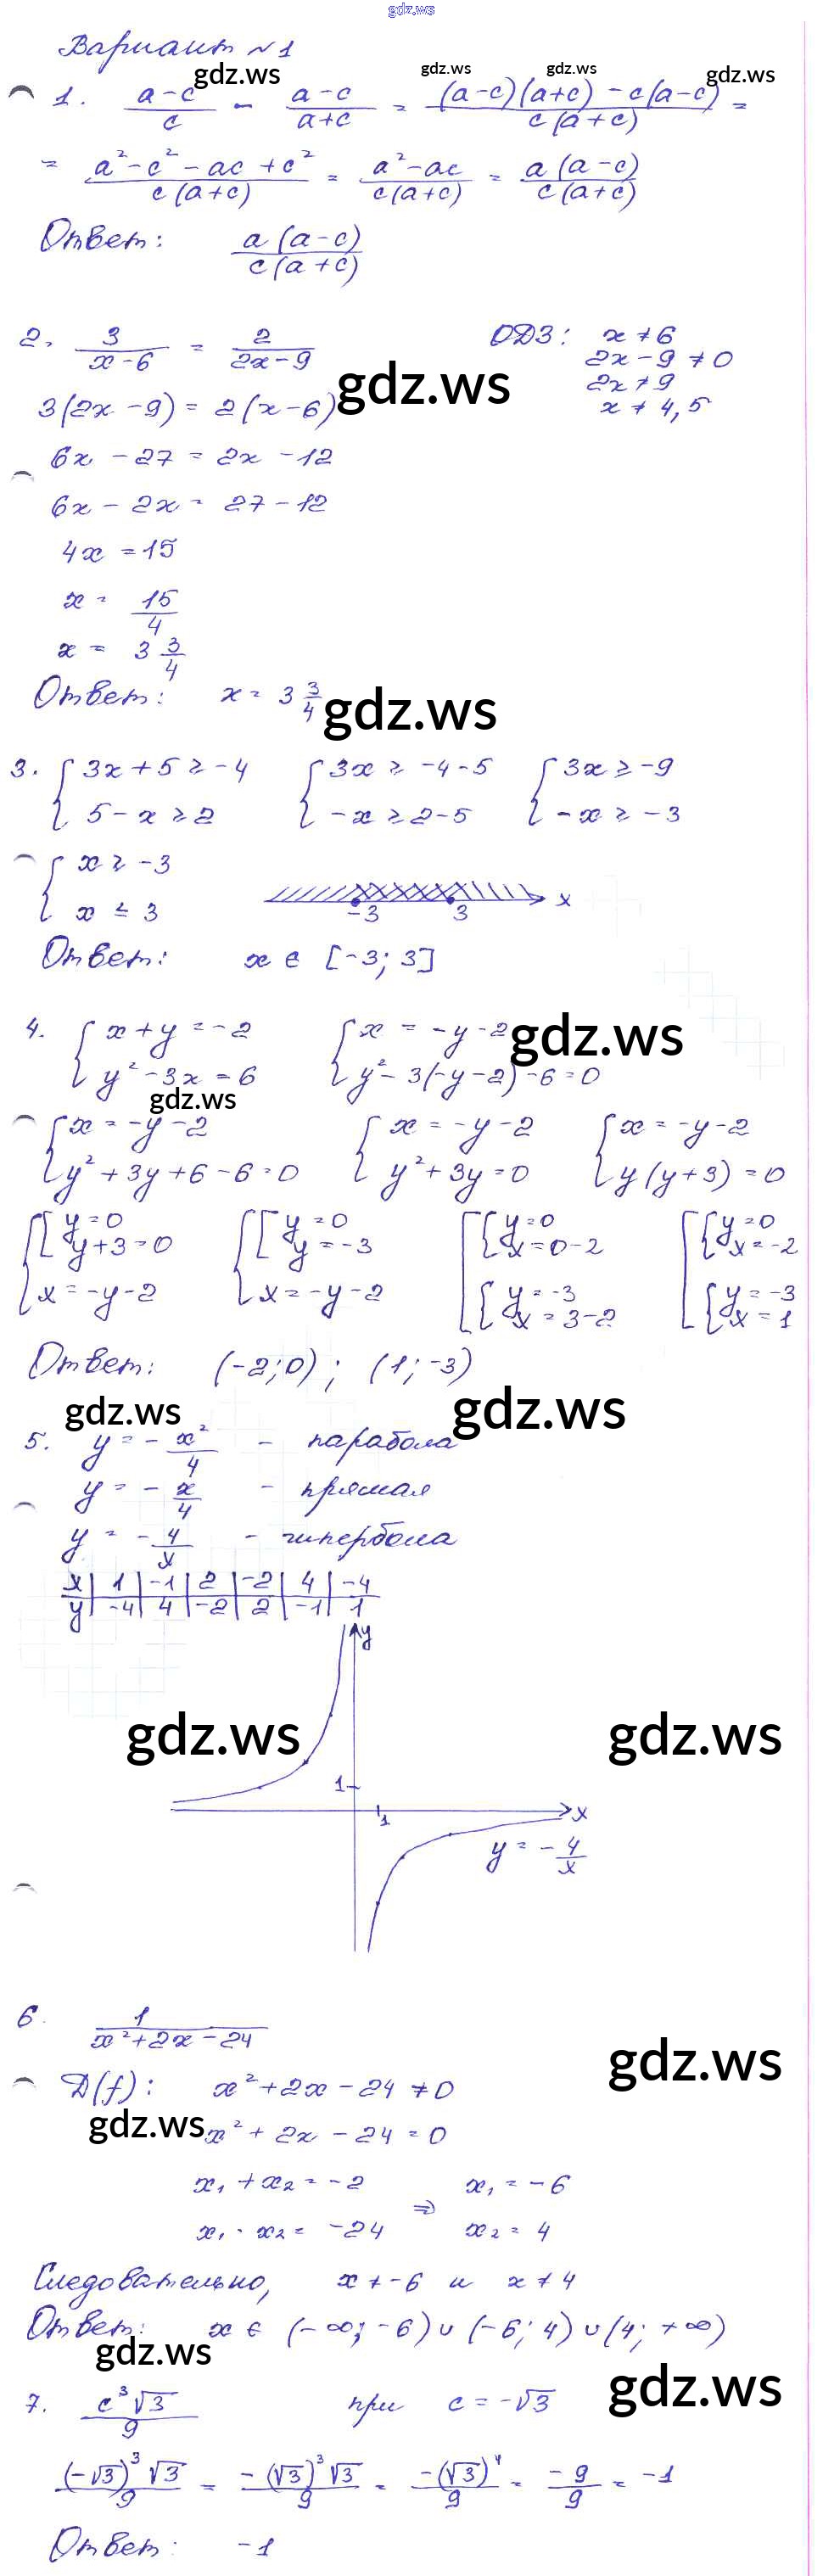 gdz.ws
Вариант №1
gdz.ws gdz.ws gdz.ws gdz.ws
1. (a-c)/c - (a-c)/(a+c) = ((a-c)(a+c) - c(a-c))/(c(a+c)) =
= (a²-c²-ac+c²)/(c(a+c)) = (a²-ac)/(c(a+c)) = (a(a-c))/(c(a+c))
Ответ: (a(a-c))/(c(a+c))
2. 3/(x-6) = 2/(2x-9) ОДЗ: x≠6
2x-9≠0
gdz.ws
2x≠9
3(2x-9) = 2(x-6) x≠4,5
6x-27 = 2x-12
6x-2x = 27-12
4x = 15
x = 15/4
x = 3 3/4
Ответ: x = 3 3/4
gdz.ws
3. { 3x+5 ≥ -4 { 3x ≥ -4-5 { 3x ≥ -9
5-x ≥ 2 -x ≥ 2-5 -x ≥ -3
{ x ≥ -3
x ≤ 3 -3 3 x
Ответ: x ∈ [-3; 3]
4. { x+y = -2 { x = -y-2 gdz.ws
y²-3x = 6 y²-3(-y-2)-6=0
gdz.ws
{ x = -y-2 { x = -y-2 { x = -y-2
y²+3y+6-6=0 y²+3y=0 y(y+3)=0
{ [ y=0 { [ y=0 [ { y=0 [ { y=0
y+3=0 y=-3 x=0-2 x=-2
x=-y-2 x=-y-2 { y=-3 { y=-3
x=3-2 x=1
Ответ: (-2;0); (1;-3)
gdz.ws gdz.ws
5. y = -x²/4 - парабола
y = -x/4 - прямая
y = -4/x - гипербола
x | 1 | -1 | 2 | -2 | 4 | -4
y | -4 | 4 | -2 | 2 | -1 | 1
y
gdz.ws gdz.ws
1
1 x
y = -4/x
6. 1/(x²+2x-24)
gdz.ws
D(f): x²+2x-24≠0
gdz.ws x²+2x-24=0
x₁+x₂=-2 ⇒ x₁=-6
x₁·x₂=-24 x₂=4
Следовательно, x≠-6 и x≠4
Ответ: x ∈ (-∞;-6)∪(-6;4)∪(4;+∞)
gdz.ws gdz.ws
7. c³√3/9 при c = -√3
(-√3)³√3/9 = -(√3)³√3/9 = -(√3)⁴/9 = -9/9 = -1
Ответ: -1